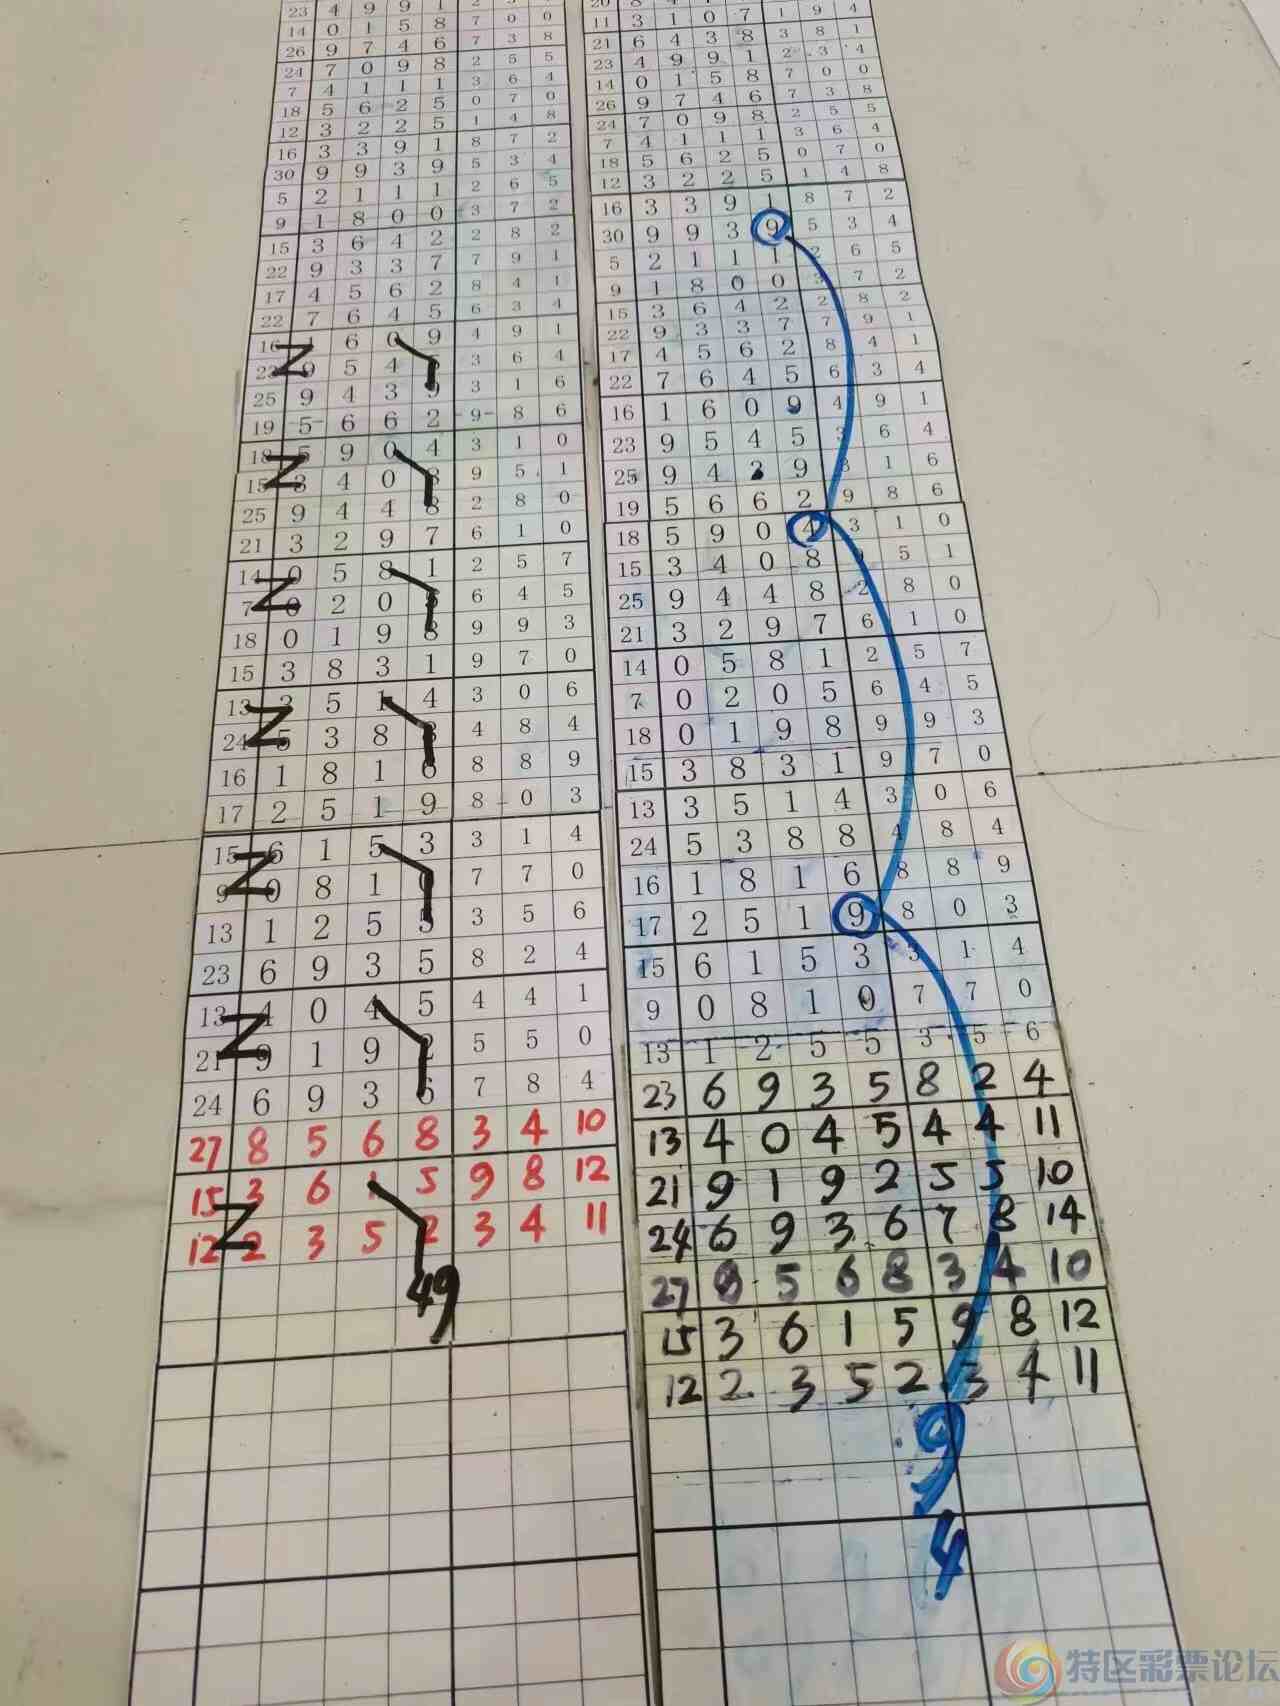 23 4 9 9 1
14 0 1 5 8 7 0 0
26 9 7 4 6 7 3 8
24 7 0 9 8 2 5 5
7 4 1 1 1 3 6 4
18 5 6 2 5 0 7 0
12 3 2 2 5 1 4 8
16 3 3 9 1 8 7 2
30 9 9 3 9 5 3 4
5 2 1 1 1 2 6 5
9 1 8 0 0 3 7 2
15 3 6 4 2 2 8 2
22 9 3 3 7 7 9 1
17 4 5 6 2 8 4 1
22 7 6 4 5 6 3 4
16 6 0 9 4 9 1
23 9 5 4 3 6 4
25 9 4 3 9 3 1 6
19 5 6 6 2 9 8 6
18 5 9 0 4 3 1 0
15 3 4 0 8 9 5 1
25 9 4 4 8 2 8 0
21 3 2 9 7 6 1 0
14 0 5 8 1 2 5 7
7 0 2 0 6 4 5
18 0 1 9 8 9 9 3
15 3 8 3 1 9 7 0
13 3 5 1 4 3 0 6
24 5 3 8 8 4 8 4
16 1 8 1 6 8 8 9
17 2 5 1 9 8 0 3
15 6 1 5 3 3 1 4
9 0 8 1 0 7 7 0
13 1 2 5 5 3 5 6
23 6 9 3 5 8 2 4
13 4 0 4 5 4 4 1
21 9 1 9 2 5 5 0
24 6 9 3 6 7 8 4
27 8 5 6 8 3 4 10
15 3 6 1 5 9 8 12
12 2 3 5 2 3 4 11
49
11 3 1 0 7 1 9 4
21 6 4 3 8 3 8 1
23 4 9 9 1 2 3 4
14 0 1 5 8 7 0 0
26 9 7 4 6 7 3 8
24 7 0 9 8 2 5 5
7 4 1 1 1 3 6 4
18 5 6 2 5 0 7 0
12 3 2 2 5 1 4 8
16 3 3 9 1 8 7 2
30 9 9 3 9 5 3 4
5 2 1 1 1 2 6 5
9 1 8 0 0 3 7 2
15 3 6 4 2 2 8 2
22 9 3 3 7 7 9 1
17 4 5 6 2 8 4 1
22 7 6 4 5 6 3 4
16 1 6 0 9 4 9 1
23 9 5 4 5 3 6 4
25 9 4 3 9 3 1 6
19 5 6 6 2 9 8 6
18 5 9 0 4 3 1 0
15 3 4 0 8 9 5 1
25 9 4 4 8 2 8 0
21 3 2 9 7 6 1 0
14 0 5 8 1 2 5 7
7 0 2 0 5 6 4 5
18 0 1 9 8 9 9 3
15 3 8 3 1 9 7 0
13 3 5 1 4 3 0 6
24 5 3 8 8 4 8 4
16 1 8 1 6 8 8 9
17 2 5 1 9 8 0 3
15 6 1 5 3 3 1 4
9 0 8 1 0 7 7 0
13 1 2 5 5 3 5 6
23 6 9 3 5 8 2 4
13 4 0 4 5 4 4 11
21 9 1 9 2 5 5 10
24 6 9 3 6 7 8 14
27 8 5 6 8 3 4 10
15 3 6 1 5 9 8 12
12 2 3 5 2 3 4 11
9
4
特区彩票论坛